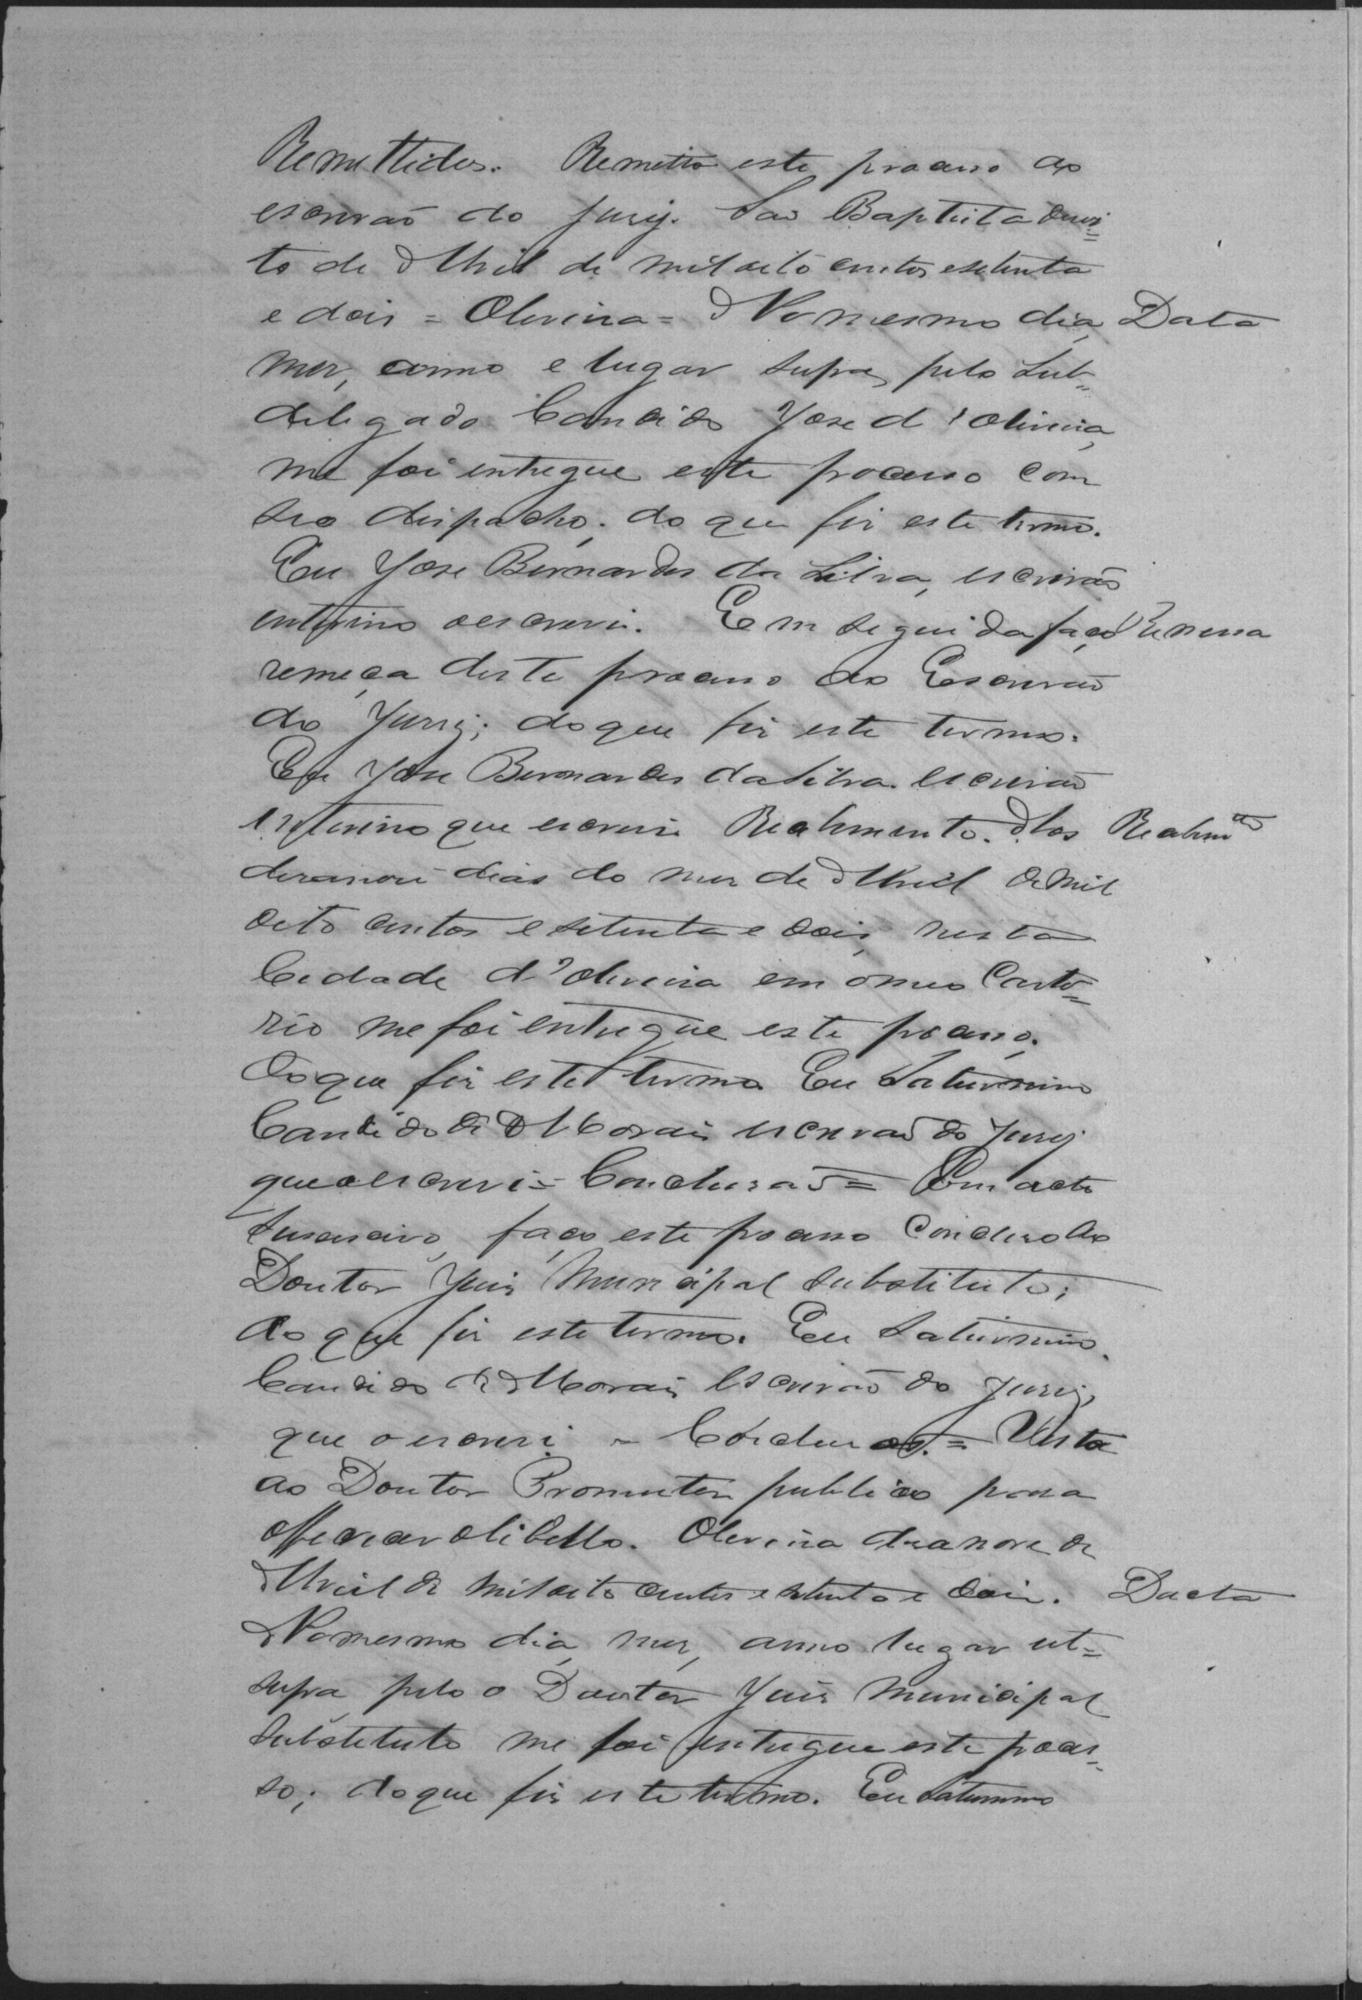 Remettidos. Remetto este processo ao
escrivaõ do Jury. Saõ Baptista desoi=
to de Abril de mil oito centos e setenta
e dois = Oliveira = No mesmo dia, Data
mes, anno e lugar supra, pelo Sub=
delegado Candido Jose d'Oliveira,
me foi entregue este processo com
seo dispacho; do que fis este termo.
Eu Jose Bernardes da Silva, escrivaõ
interino oescrevi. Em seguida faço Remessa
remeça deste processo ao Escrivaõ
do Jury; doque fis este termo.
Eu Jose Bernardes da Silva escrivaõ
interino que escrevi Recebimento. Aos Recebim.to
desanove dias do mes de Abril de mil
oito centos e setenta e dois, nesta
Cidade d'Oliveira em o meo Carto=
rio me foi entregue este processo.
Do que fis este termo Eu Saturnino
Candido de Morais escrivaõ do Jury
que oescrevi = Conclusaõ = Em acto
sucessivo, faço este processo Concluso ao
Doutor Juis Municipal Substituto;
do que fis este termo. Eu Saturnino
Candido de Morais Escrivaõ do Jury,
que o escrevi = Conclusos. = Vista
ao Doutor Promutor publico para
offerecer olibello. Oliveira desanove de
Abril de mil oito centos e setenta e dois. Dacta
No mesmo dia, mes, anno lugar ut=
supra pelo o Doutor Juis Municipal
Substituto me foi entregue este proces=
so; doque fis este termo. Eu Saturnino